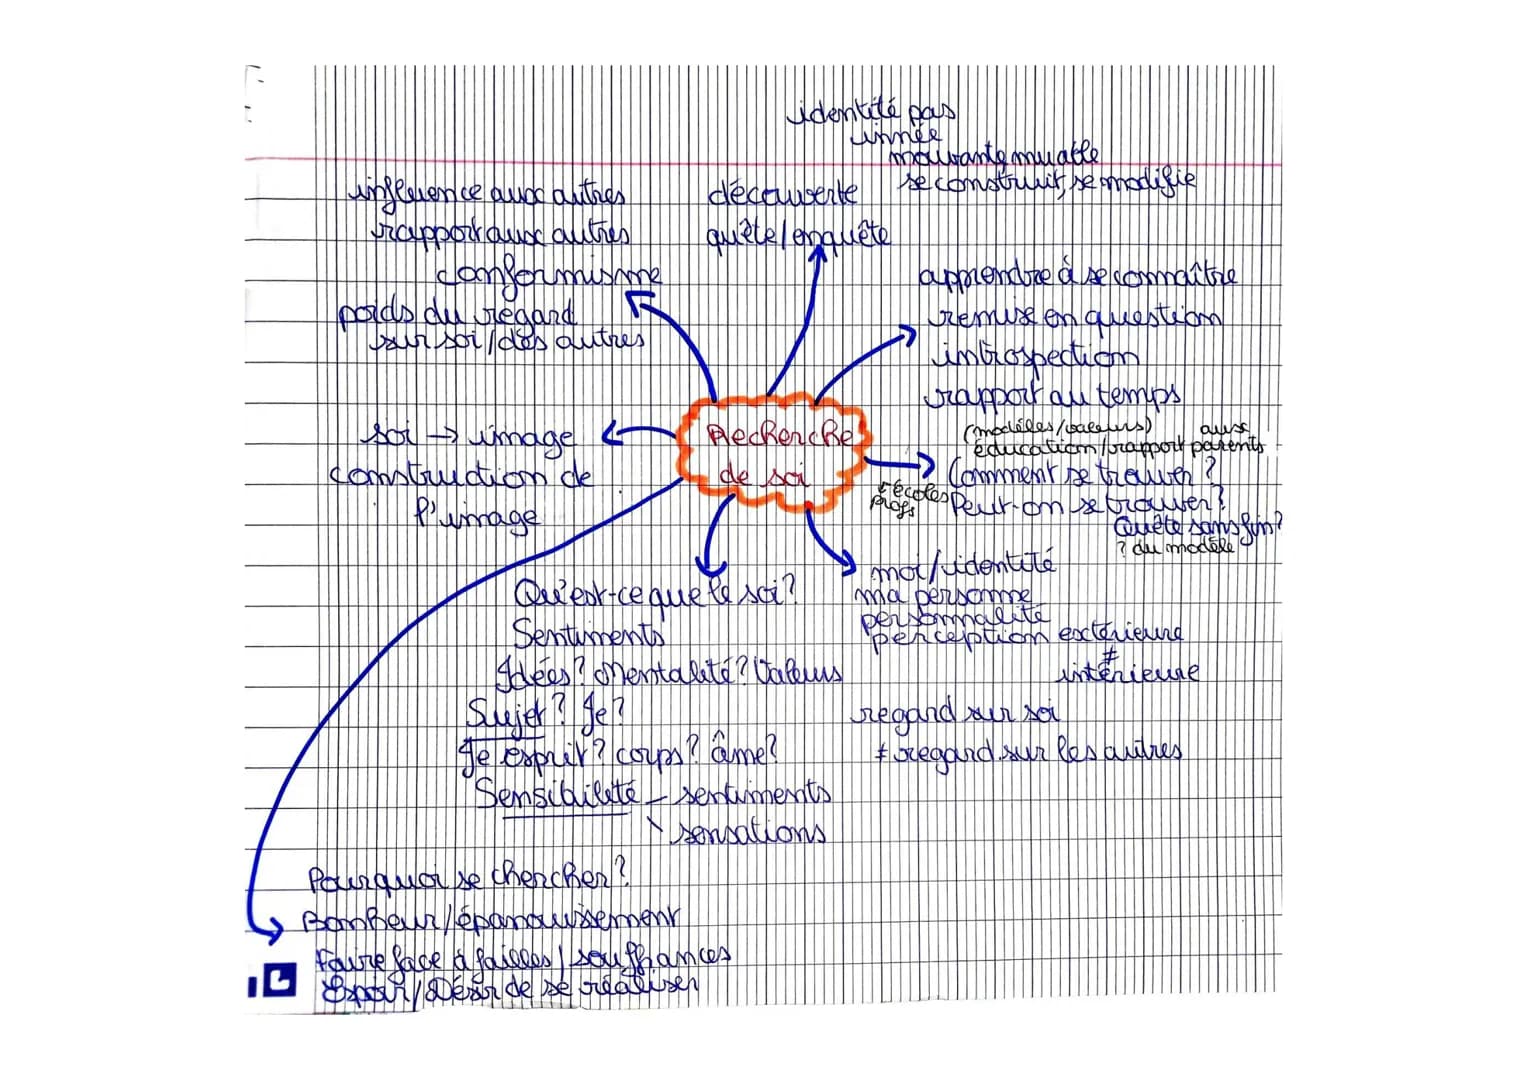 identité pas
innée
mouvante, muable
se construit, se modifie
influence aux autres
rapport aux autres
conformisme
poids du regard
sur soi / des autres
découverte
quête / enquête
apprendre à se connaître
remise en question
introspection
rapport au temps
Recherche
de soi
soi → image
construction de
l'image
(modèles/valeurs) aux
éducation/rapport parents
Comment se trouver ?
écoles
profs
Peut-on se trouver ?
Quête sans fin ?
? du modèle
Qu'est-ce que le soi ?
Sentiments
Idées ? Mentalité ? Valeurs
Sujet ? Je ?
Je esprit ? corps ? âme ?
Sensibilité - sentiments
\ sensations
moi/identité
ma personne
personnalité
perception extérieure
≠
intérieure
regard sur soi
≠ regard sur les autres
Pourquoi se chercher ?
Bonheur/épanouissement
Faire face à failles / souffrances
Espoir / Désir de se réaliser